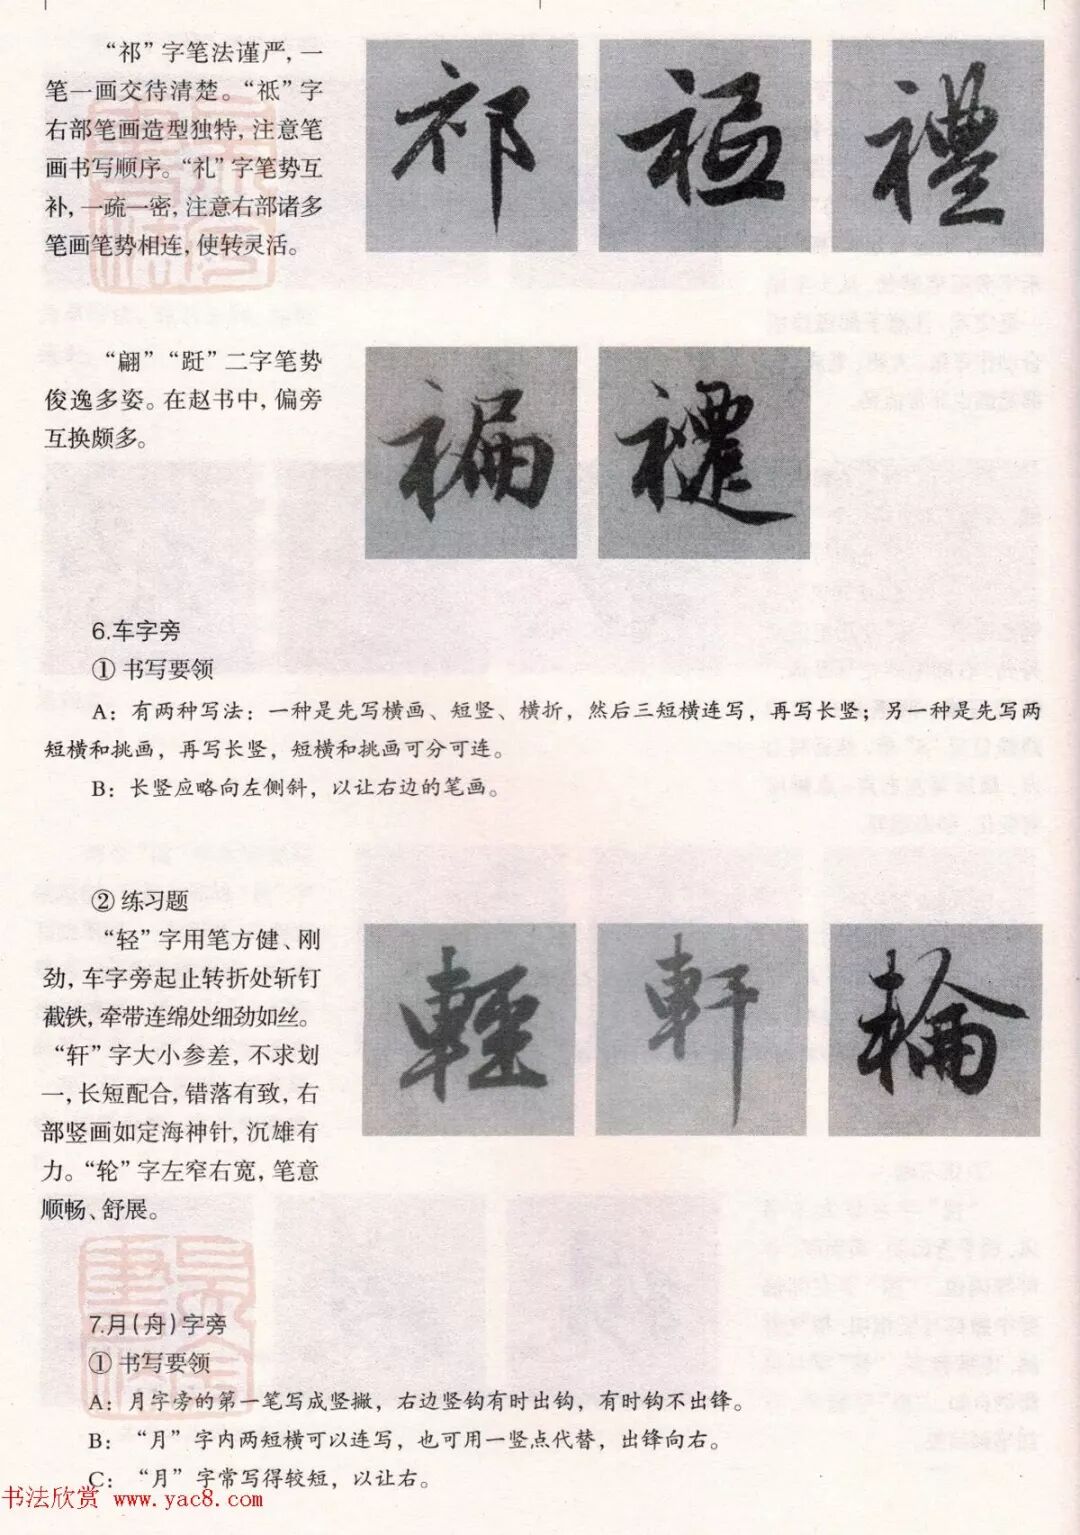 “祁”字笔法谨严，一
笔一画交待清楚。“祇”字
右部笔画造型独特，注意笔
画书写顺序。“礼”字笔势互
补，一疏一密，注意右部诸多
笔画笔势相连，使转灵活。
祁 禮
“翩”“跹”二字笔势
俊逸多姿。在赵书中，偏旁
互换颇多。
6.车字旁
① 书写要领
A：有两种写法：一种是先写横画、短竖、横折，然后三短横连写，再写长竖；另一种是先写两
短横和挑画，再写长竖，短横和挑画可分可连。
B：长竖应略向左侧斜，以让右边的笔画。
② 练习题
“轻”字用笔方健、刚
劲，车字旁起止转折处斩钉
截铁，牵带连绵处细劲如丝。
“轩”字大小参差，不求划
一，长短配合，错落有致，右
部竖画如定海神针，沉雄有
力。“轮”字左窄右宽，笔意
顺畅、舒展。
輕 軒 輪
7.月(舟)字旁
① 书写要领
A：月字旁的第一笔写成竖撇，右边竖钩有时出钩，有时钩不出锋。
B：“月”字内两短横可以连写，也可用一竖点代替，出锋向右。
C：“月”字常写得较短，以让右。
书法欣赏 www.yac8.com